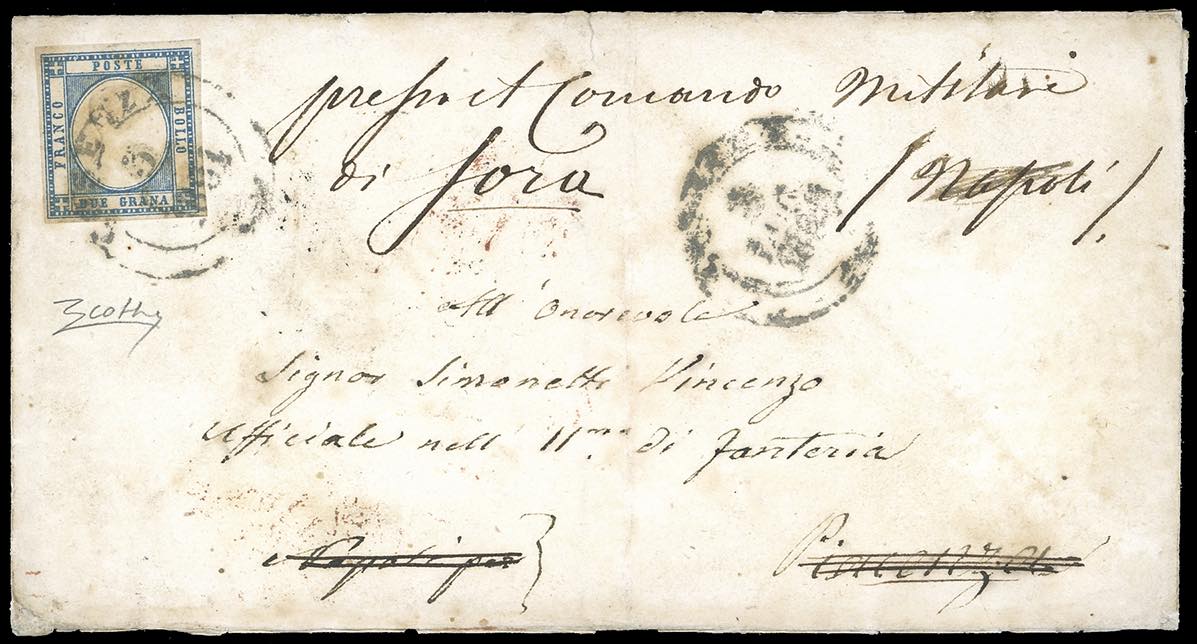 POSTE
FRANCO
BOLLO
DUE GRANA
Comando Militare
di Sora
(Napoli)
All' Onorevole
Signor Simonetti Vincenzo
Ufficiale nell 11mo di fanteria
Napoli per
Piacenza